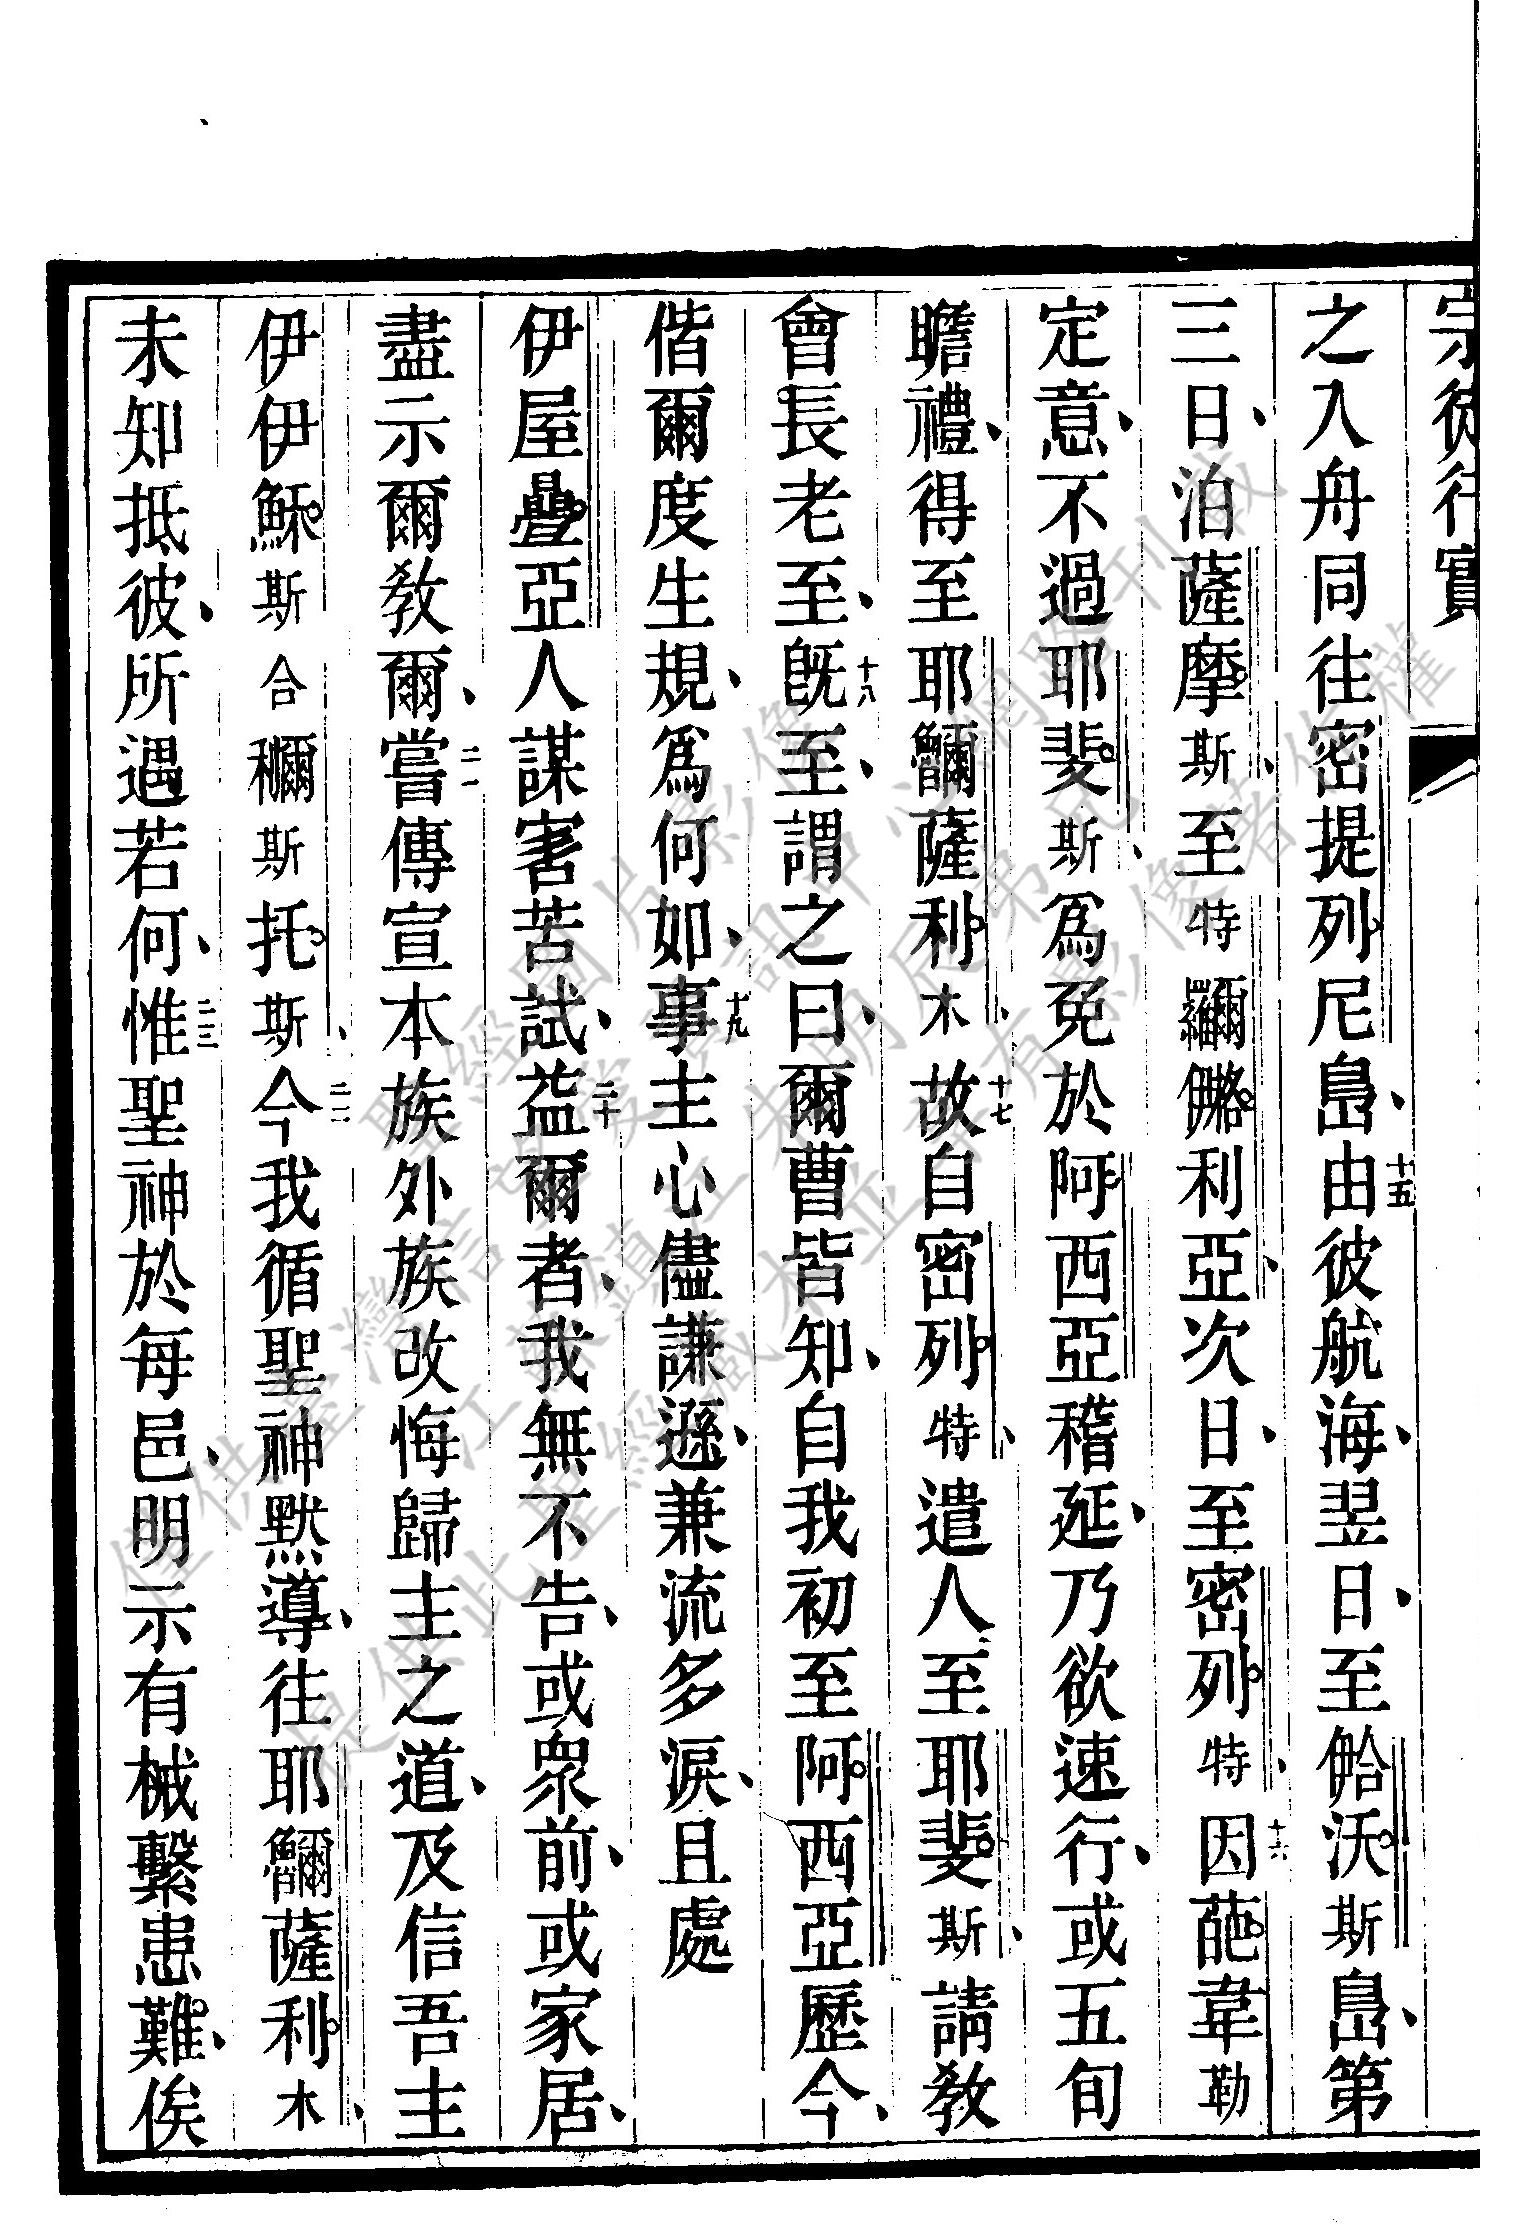 宗徒行實
之入舟同往密提列尼島、十五由彼航海、翌日、至沃斯島、第
三日、泊薩摩斯、至特利亞、次日、至密列特、十六因葩韋勒
定意、不過耶斐斯、爲免於阿西亞稽延、乃欲速行、或五旬
瞻禮、得至耶薩利木、十七故自密列特、遣人至耶斐斯、請教
會長老至、十八旣至、謂之曰、爾曹皆知、自我初至阿西亞歷今、
偕爾度生規、爲何如、十九事主心儘謙遜、兼流多淚、且處
伊屋疊亞人謀害苦試、二十益爾者、我無不告、或眾前、或家居、
盡示爾教爾、二一嘗傳宣本族外族改悔歸主之道、及信吾主
伊伊穌斯合斯托斯、二二今我循聖神默導、往耶薩利木、
未知抵彼、所遇若何、二三惟聖神於每邑、明示有械繫患難、俟